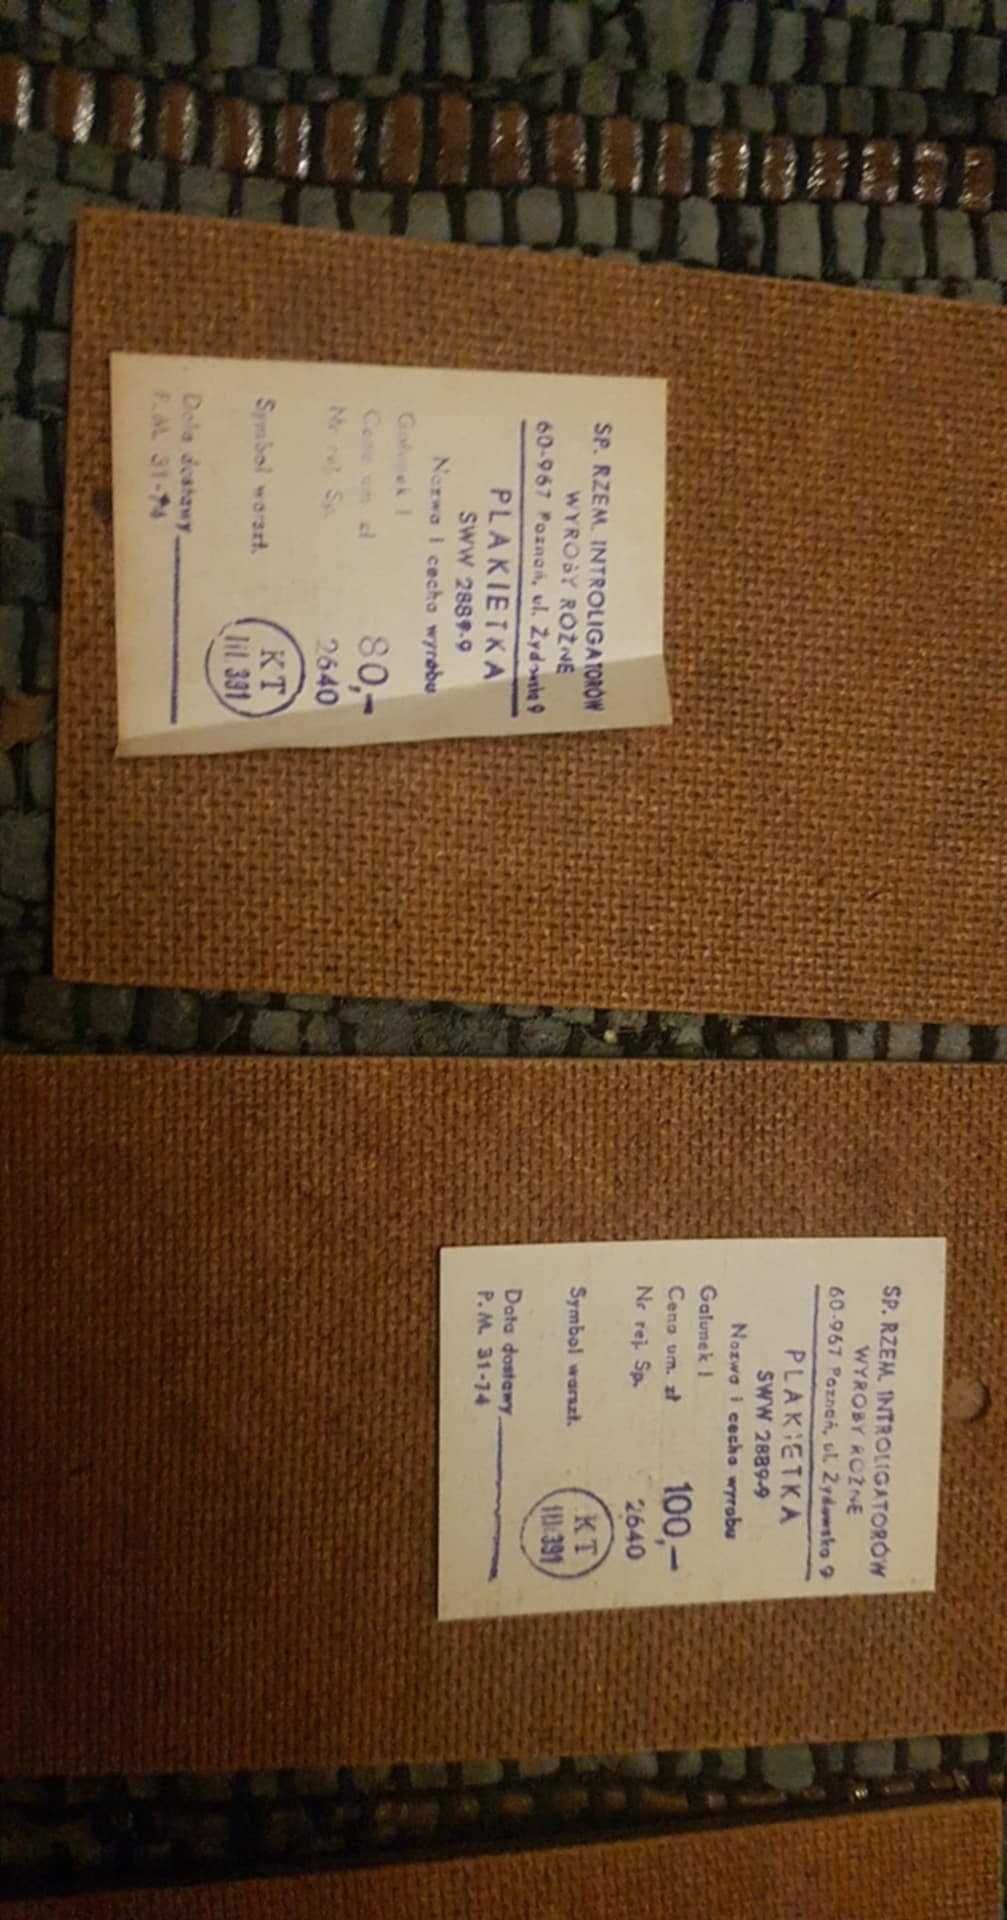 SP. RZEM. INTROLIGATORÓW
WYROBY RÓŻNE
60-967 Poznań, ul. Żydowska 9
PLAKIETKA
SWW 2889-9
Nazwa i cecha wyrobu
Gatunek I
Cena um. zł 80,-
Nr rej. Sp. 2640
Symbol warszt. KT
III.391
Data dostawy
P.M. 31-74
SP. RZEM. INTROLIGATORÓW
WYROBY RÓŻNE
60-967 Poznań, ul. Żydowska 9
PLAKIETKA
SWW 2889-9
Nazwa i cecha wyrobu
Gatunek I
Cena um. zł 100,-
Nr rej. Sp. 2640
Symbol warszt. KT
III.391
Data dostawy
P.M. 31-74